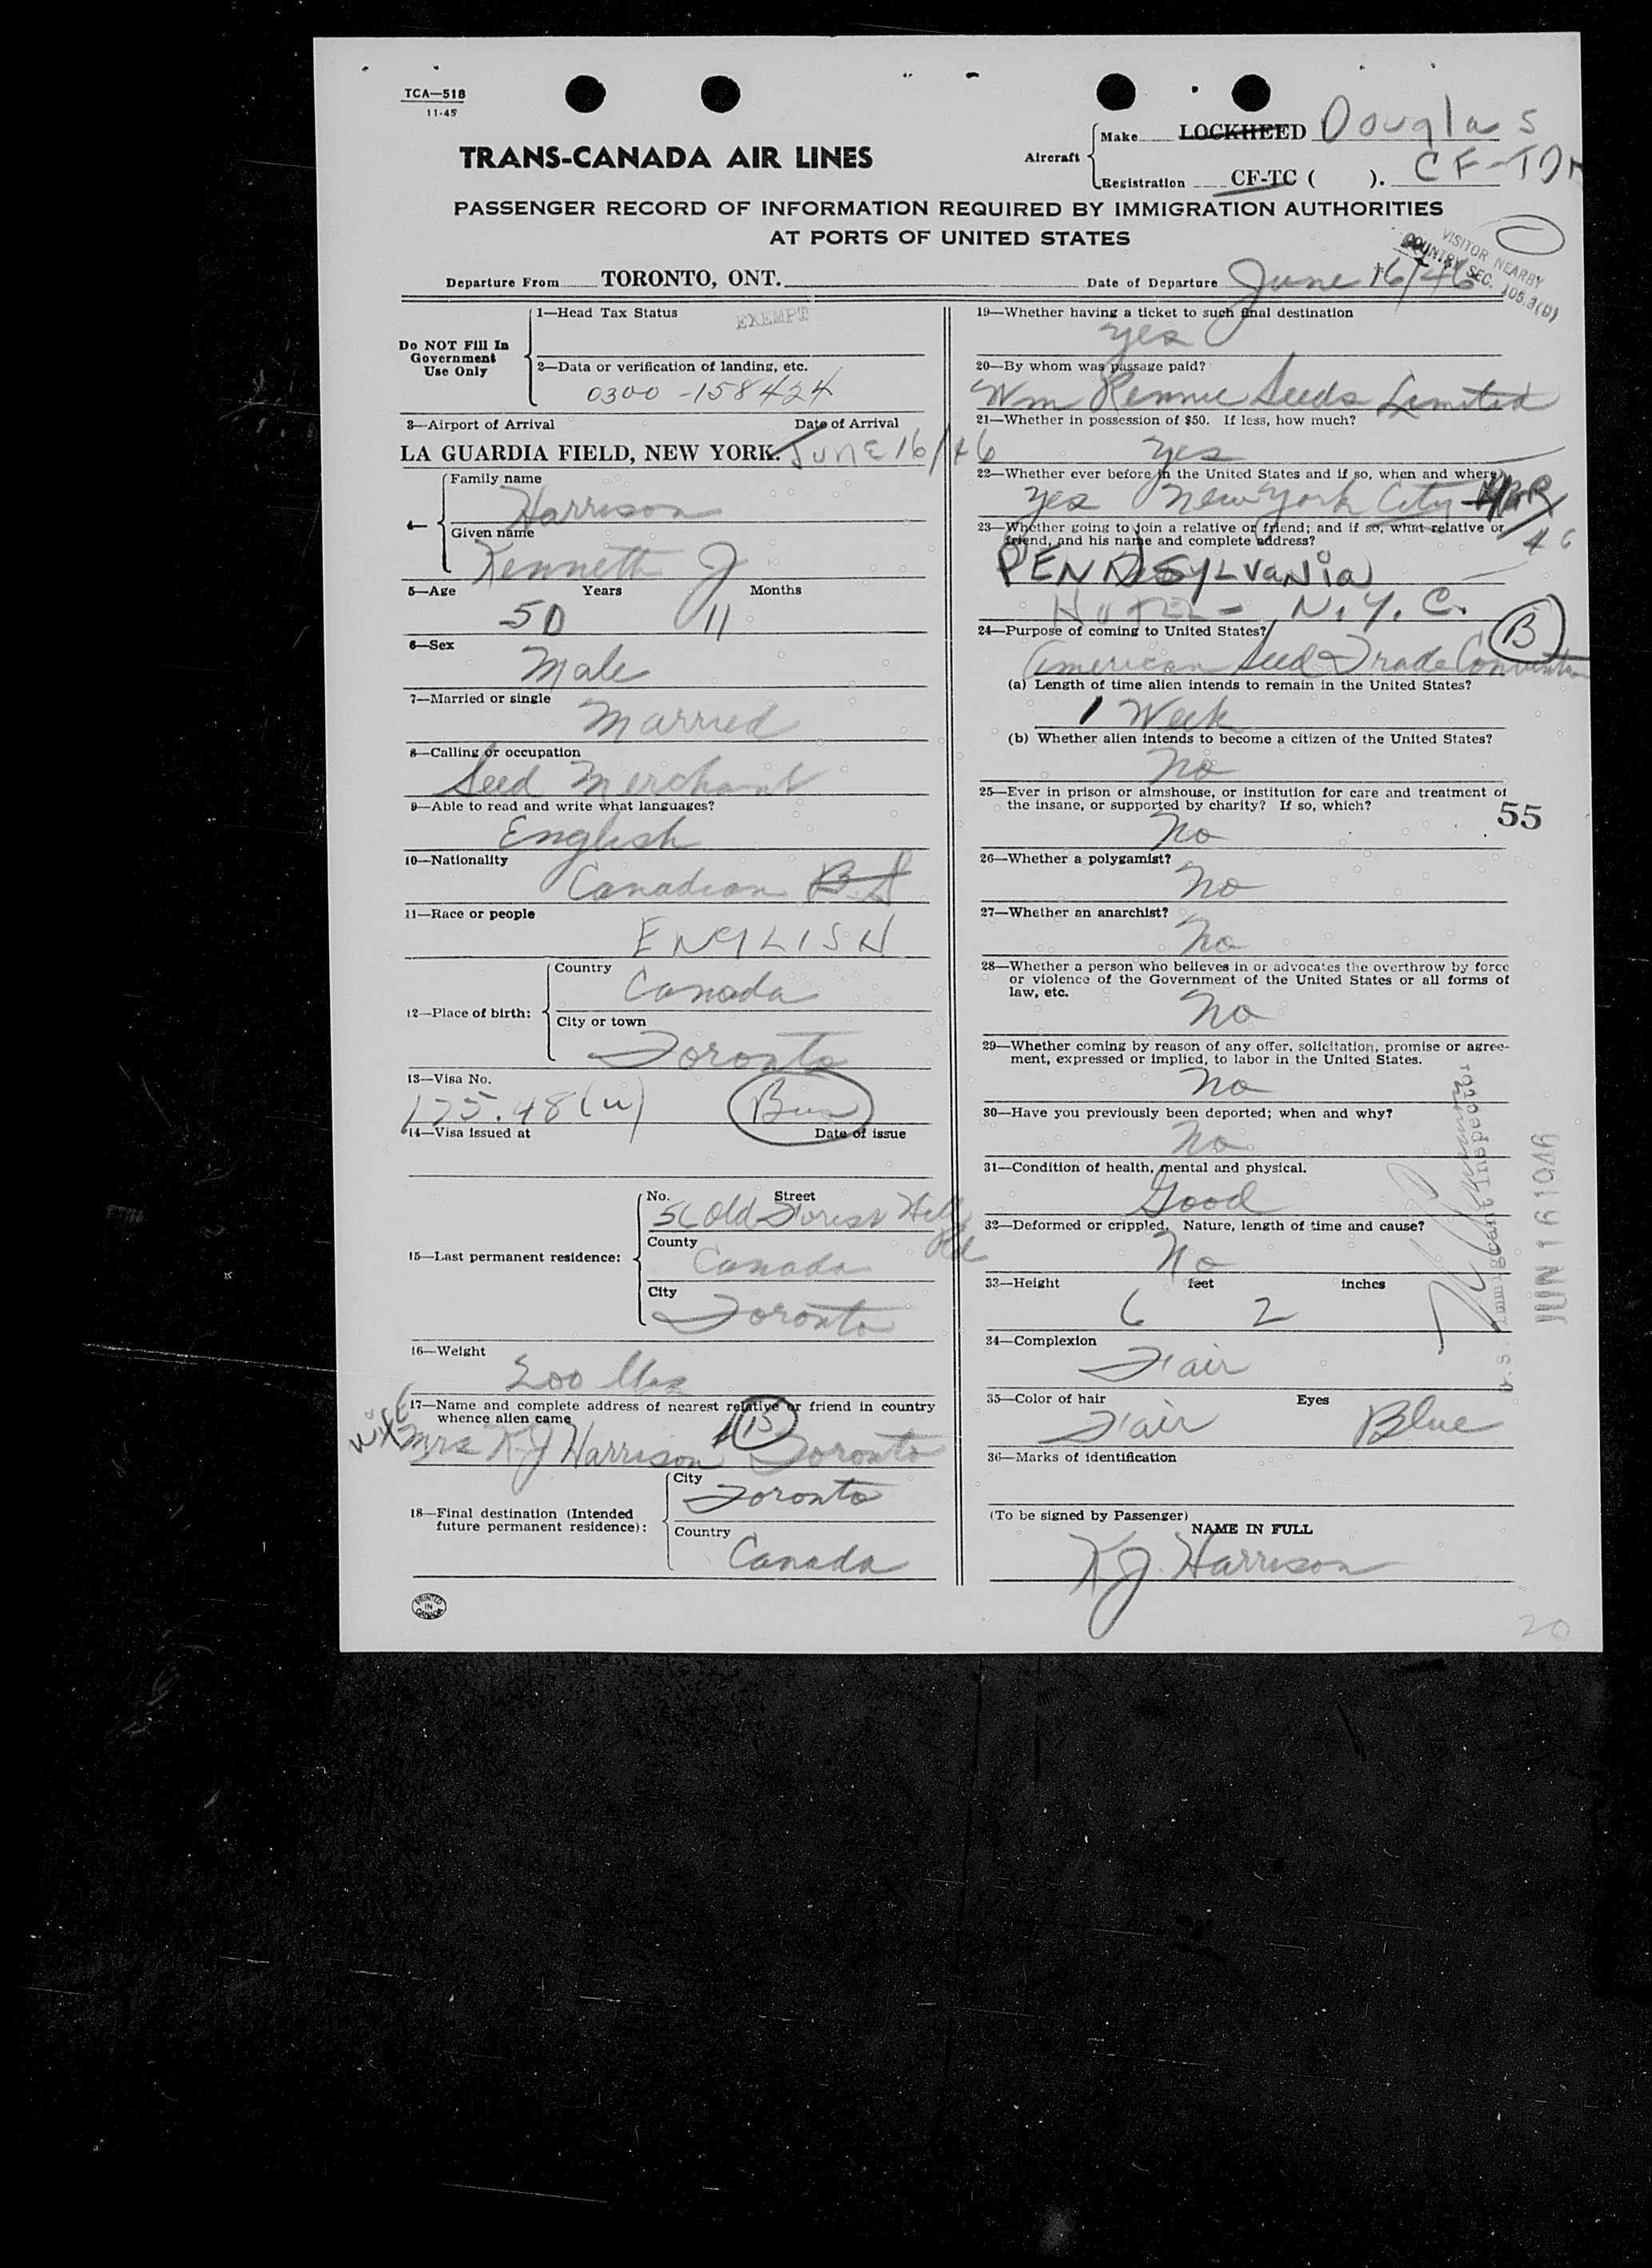 TCA—518
11-45
TRANS-CANADA AIR LINES
Aircraft
Make LOCKHEED Douglas
Registration CF-TC ( ). CF-TD
PASSENGER RECORD OF INFORMATION REQUIRED BY IMMIGRATION AUTHORITIES
AT PORTS OF UNITED STATES
VISITOR NEARBY
COUNTRY SEC. 105.3(D)
Departure From TORONTO, ONT.
Date of Departure June 16/46
Do NOT Fill In
Government
Use Only
1—Head Tax Status EXEMPT
2—Data or verification of landing, etc.
0300-158424
3—Airport of Arrival Date of Arrival
LA GUARDIA FIELD, NEW YORK. JUNE 16/46
4—
Family name
Harrison
Given name
Kenneth J
5—Age Years Months
50 11
6—Sex
Male
7—Married or single
Married
8—Calling or occupation
Seed Merchant
9—Able to read and write what languages?
English
10—Nationality
Canadian B.S
11—Race or people
ENGLISH
12—Place of birth:
Country
Canada
City or town
Toronto
13—Visa No.
175.48(u) Bus
14—Visa issued at Date of issue
15—Last permanent residence:
No. Street
56 Old Forest Hill
Rd
County
Canada
City
Toronto
16—Weight
200 lbs
17—Name and complete address of nearest relative or friend in country
whence alien came
wife Mrs K J Harrison Toronto
18—Final destination (Intended
future permanent residence):
City
Toronto
Country
Canada
PRINTED
IN
CANADA
19—Whether having a ticket to such final destination
yes
20—By whom was passage paid?
Wm Rennie Seeds Limited
21—Whether in possession of $50. If less, how much?
yes
22—Whether ever before in the United States and if so, when and where?
yes New York City MAR
46
23—Whether going to join a relative or friend; and if so, what relative or
friend, and his name and complete address?
PENNSYLVANIA
HOTEL - N.Y.C.
24—Purpose of coming to United States? B
American Seed Trade Convention
(a) Length of time alien intends to remain in the United States?
1 Week
(b) Whether alien intends to become a citizen of the United States?
No
25—Ever in prison or almshouse, or institution for care and treatment of
the insane, or supported by charity? If so, which?
55
No
26—Whether a polygamist?
No
27—Whether an anarchist?
No
28—Whether a person who believes in or advocates the overthrow by force
or violence of the Government of the United States or all forms of
law, etc.
No
29—Whether coming by reason of any offer, solicitation, promise or agree-
ment, expressed or implied, to labor in the United States.
No
30—Have you previously been deported; when and why?
No
31—Condition of health, mental and physical.
Good
32—Deformed or crippled. Nature, length of time and cause?
No
33—Height feet inches
6 2
34—Complexion
Fair
35—Color of hair Eyes
Fair Blue
36—Marks of identification
U.S. Immigrant Inspector
JUN 16 1946
(To be signed by Passenger)
NAME IN FULL
K J Harrison
20